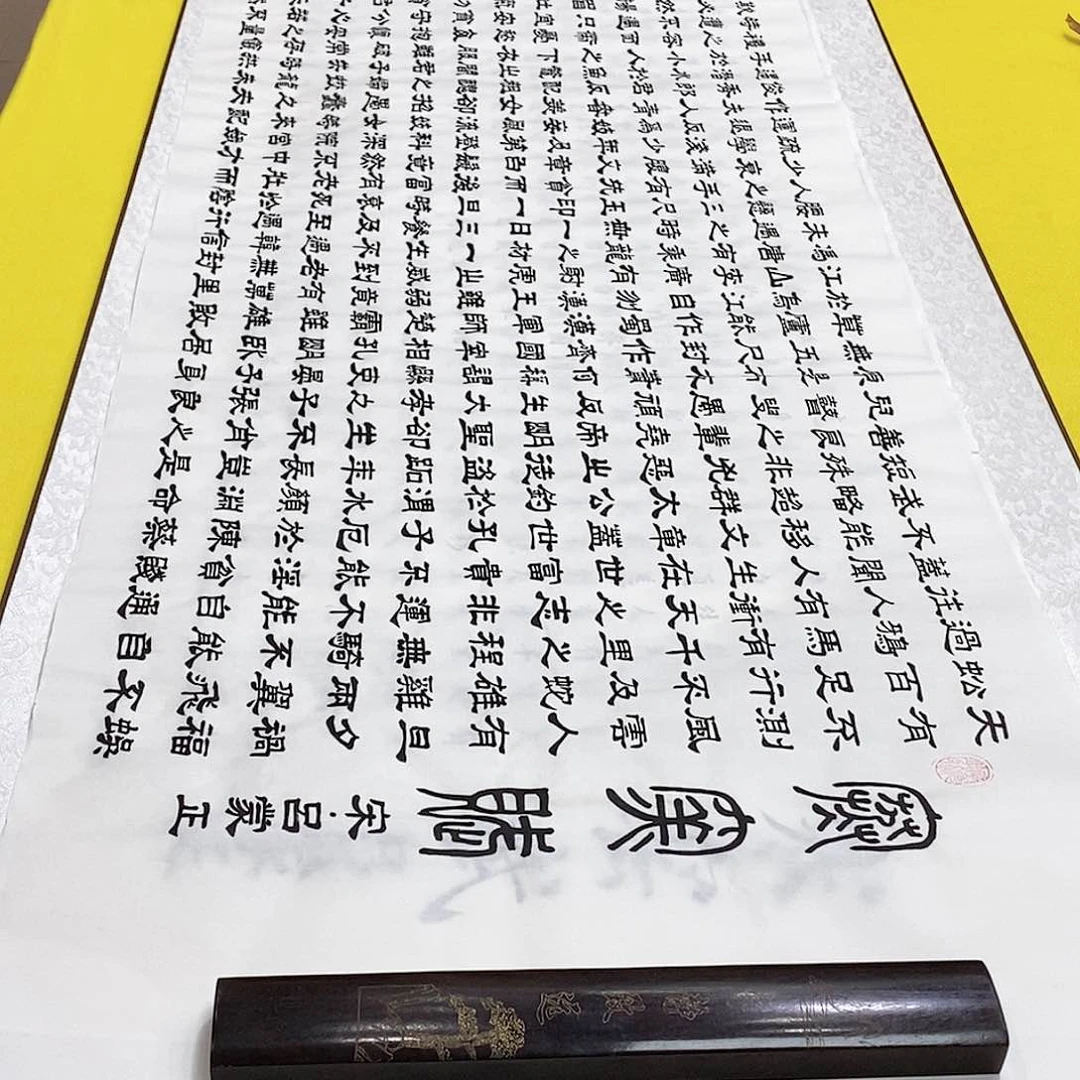 寒窯賦
宋·呂蒙正
天有不測風雲人有旦夕禍福蜈
蚣百足行不及蛇雄雞兩翼飛不
過鴉馬有千里之程無騎不能自
往人有衝天之志非運不能自通
蓋聞人生在世富貴不能淫貧賤
不能移文章蓋世孔子厄於陳蔡
武略超群太公釣於渭水顏淵命
短殊非兇惡之徒盜跖年長豈是
善良之輩堯帝明聖卻生不肖之
兒瞽叟愚頑反生大孝之子張良
原是布衣蕭何稱謂縣吏晏子身
無五尺封作齊國宰相孔明臥居
草廬能作蜀漢軍師楚霸雖雄敗
於烏江自刎漢王雖弱竟有萬里
江山李廣有射虎之威到老無封
馮唐有乘龍之才一生不遇韓信
未遇之時無一日三餐及至遇行
腰懸三尺玉印一旦時衰死於陰
人之手有先貧而後富有老壯而
少衰滿腹文章白髮竟然不中才
疏學淺少年及第登科深院宮娥
運退反為妓妾風流妓女時來配
作夫人青春美女卻招愚蠢之夫
俊秀郎君反配粗醜之婦蛟龍未
遇潛水於魚鱉之間君子失時拱
手於小人之下衣服雖破常存儀